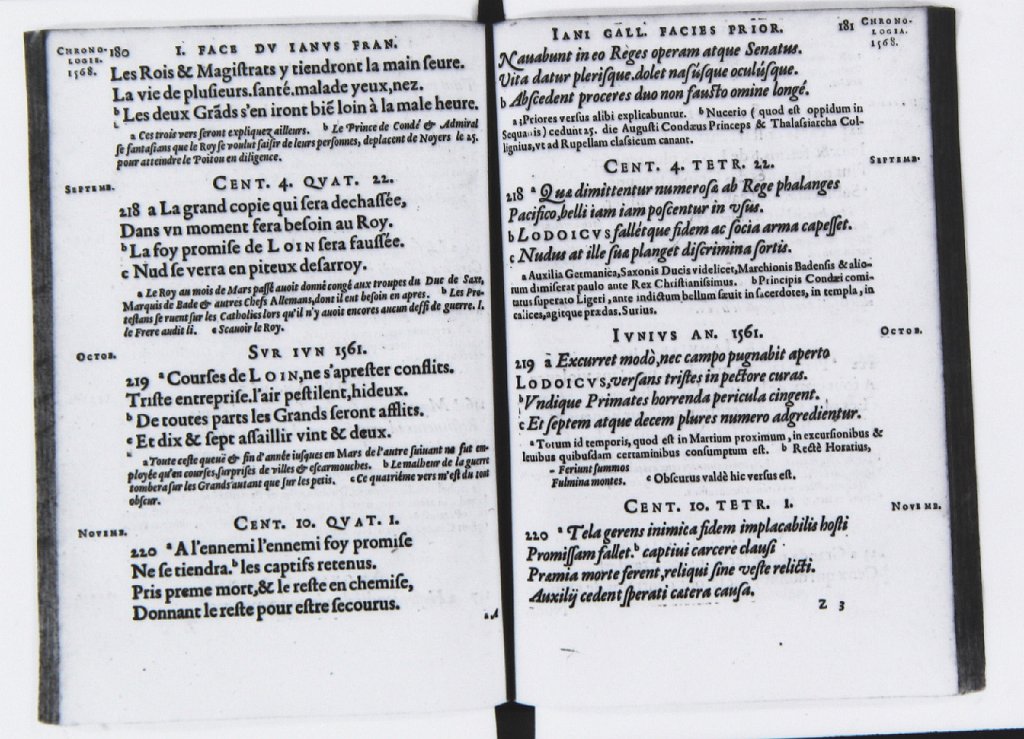 CHRONO-
LOGIE.
1568.
180 I. FACE DV IANVS FRAN.
Les Rois & Magiſtrats y tiendront la main ſeure.
La vie de pluſieurs.ſanté.malade yeux,nez.
b Les deux Grãds s'en iront biẽ loin à la male heure.
a Ces trois vers ſeront expliquez ailleurs. b Le Prince de Condé & Admiral
ſe fantaſians que le Roy ſe voulut ſaiſir de leurs perſonnes, deplacent de Noyers le 25.
pour atteindre le Poitou en diligence.
SEPTEMB.
CENT. 4. QVAT. 22.
218 a La grand copie qui ſera dechaſſée,
Dans vn moment fera beſoin au Roy.
b La foy promiſe de LOIN ſera fauſſée.
c Nud ſe verra en piteux deſarroy.
a Le Roy au mois de Mars paſſé auoit donné congé aux troupes du Duc de Saxe,
Marquis de Bade & autres Chefs Allemans,dont il eut beſoin en apres. b Les Pro-
teſtans ſe ruent ſur les Catholics lors qu'il n'y auoit encores aucun deffi de guerre. I.
le Frere audit li. c Scauoir le Roy.
OCTOB.
SVR IVN 1561.
219 a Courſes de LOIN,ne s'apreſter conflits.
Triſte entrepriſe.l'air peſtilent,hideux.
b De toutes parts les Grands ſeront afflits.
c Et dix & ſept aſſaillir vint & deux.
a Toute ceſte queuë & fin d'année iuſques en Mars de l'autre ſuiuant ne fut em-
ployée qu'en courſes,ſurpriſes de villes & eſcarmouches. b Le malheur de la guerre
tombera ſur les Grands autant que ſur les petis. c Ce quatriéme vers m'eſt du tout
obſcur.
NOVEMB.
CENT. 10. QVAT. 1.
220 a A l'ennemi l'ennemi foy promiſe
Ne ſe tiendra.b les captifs retenus.
Pris preme mort,& le reſte en chemiſe,
Donnant le reſte pour eſtre ſecourus.
IANI GALL. FACIES PRIOR. 181
CHRONO-
LOGIA.
1568.
Nauabunt in eo Reges operam atque Senatus.
Vita datur pleriſque.dolet naſúſque oculúſque.
b Abſcedent proceres duo non fauſto omine longé.
a Priores verſus alibi explicabuntur. b Nucerio ( quod eſt oppidum in
Sequanis ) cedunt 25. die Auguſti Condæus Princeps & Thalaſſiarcha Col-
lignius,vt ad Rupellam claſſicum canant.
CENT. 4. TETR. 22.
SEPTEMB.
218 a Quæ dimittentur numeroſæ ab Rege phalanges
Pacifico,belli iam iam poſcentur in vſus.
b LODOICVS fallétque fidem ac ſocia arma capeſſet.
c Nudus at ille ſuæ planget diſcrimina ſortis.
a Auxilia Germanica,Saxonis Ducis videlicet,Marchionis Badenſis & alio-
rum dimiſerat paulo ante Rex Chriſtianiſſimus. b Principis Condæi comi-
tatus ſuperato Ligeri , ante indictum bellum ſæuit in ſacerdotes, in templa , in
calices,agitque prædas. Surius.
IVNIVS AN. 1561.
OCTOB.
219 a Excurret modò,nec campo pugnabit aperto
LODOICVS,verſans triſtes in pectore curas.
b Vndique Primates horrenda pericula cingent.
c Et ſeptem atque decem plures numero adgredientur.
a Totum id temporis, quod eſt in Martium proximum , in excurſionibus &
leuibus quibuſdam certaminibus conſumptum eſt. b Rectè Horatius,
– Feriunt ſummos
Fulmina montes. c Obſcurus valdè hic verſus eſt.
CENT. 10. TETR. 1.
NOVEMB.
220 a Tela gerens inimica fidem implacabilis hoſti
Promiſſam fallet.b captiui carcere clauſi
Præmia morte ferent,reliqui ſine veſte relicti.
Auxilij cedent ſperati cætera cauſa.
Z 3